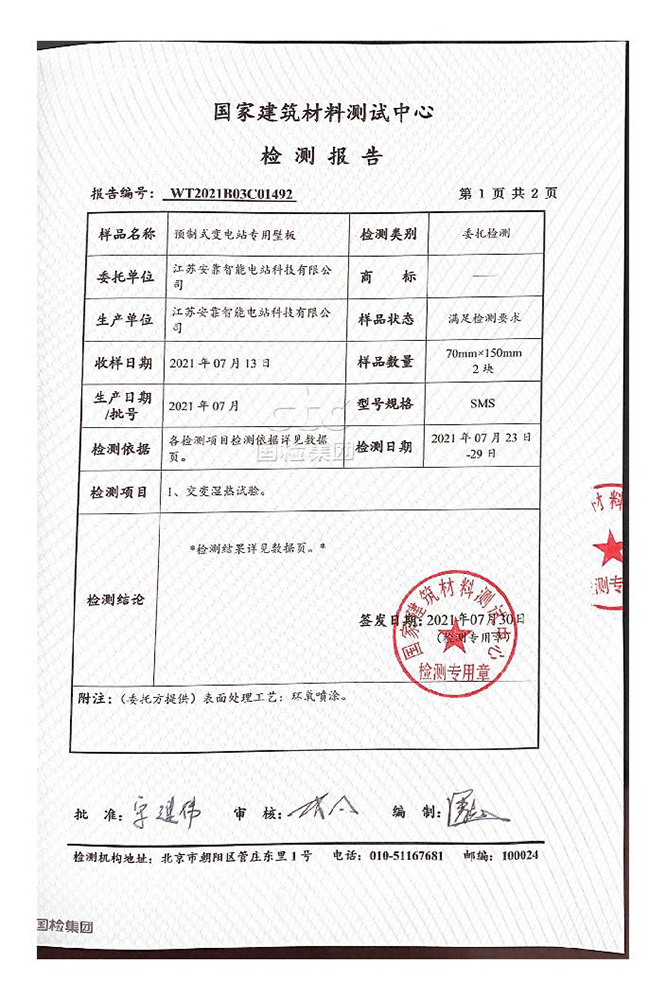 国家建筑材料测试中心
检测报告
报告编号： WT2021B03C01492 第 1 页 共 2 页
样品名称 预制式变电站专用壁板 检测类别 委托检测
委托单位 江苏安靠智能电站科技有限公
司 商 标 ——
生产单位 江苏安靠智能电站科技有限公
司 样品状态 满足检测要求
收样日期 2021 年 07 月 13 日 样品数量 70mm×150mm
2 块
生产日期
/批号 2021 年 07 月 型号规格 SMS
检测依据 各检测项目检测依据详见数据
页。 检测日期 2021 年 07 月 23 日
-29 日
国检集团
检测项目 1、交变湿热试验。
检测结论 *检测结果详见数据页。*
签发日期: 2021年07月30日
(检测专用章)
国家建筑材料测试中心
检测专用章
材料
测专
附注：（委托方提供）表面处理工艺：环氧喷涂。
批 准: 审 核: 编 制:
检测机构地址：北京市朝阳区管庄东里 1 号 电话：010-51167681 邮编：100024
国检集团